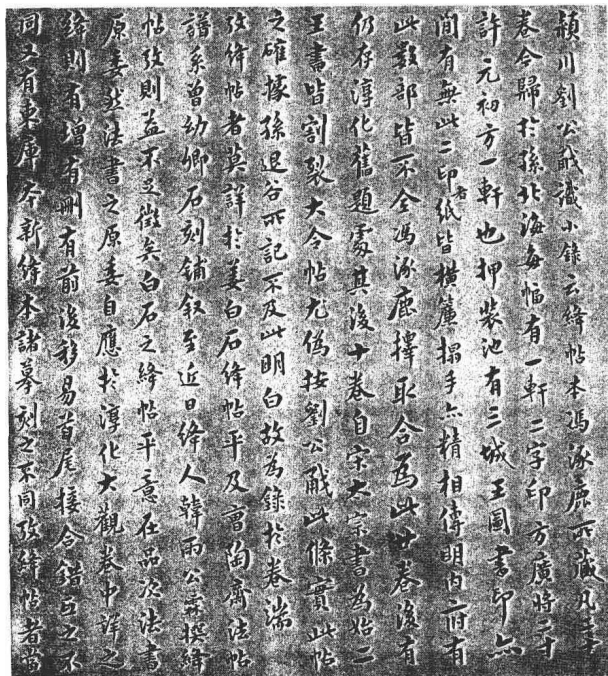 潁川劉公㦷識小錄云絳帖本馮涿鹿所藏凡二十
卷今歸於孫北海每幅有一軒二字印方廣將二寸
許元初方一軒也押裝池有三城王圖書印亦
間有無此二印者紙皆橫簾搨手亦精相傳明內府有
此數部皆不全馮涿鹿擇取合為此廿卷後有
仍存淳化舊題處其後十卷自宋太宗書為始二
王書皆割裂大令帖尤偽按劉公㦷此條實此帖
之確據孫退谷所記不及此明白故為錄於卷端
攷絳帖者莫詳於姜白石絳帖平及曹陶齋法帖
譜系曾幼卿石刻鋪敘至近日絳人韓雨公霖撰絳
帖攷則益不足徵矣白石之絳帖平意在品次法書
原委然法書之原委自應於淳化大觀卷中詳之
絳則有增有刪有前後移易首尾接合錯互之不
同又有東庫本新絳本諸摹刻之不同攷絳帖者當